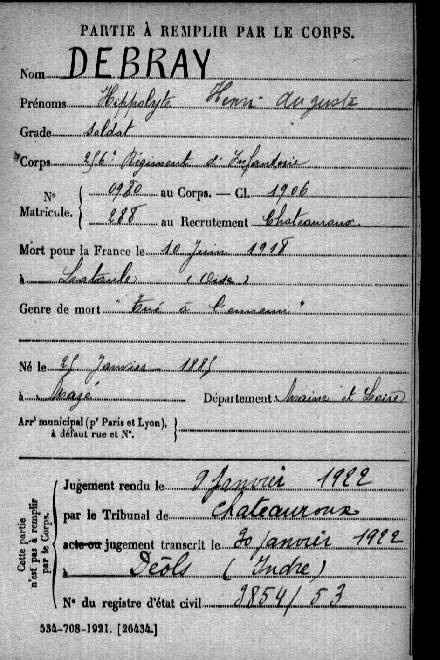 PARTIE À REMPLIR PAR LE CORPS.
Nom DEBRAY
Prénoms Hippolyte Henri Auguste
Grade soldat
Corps 256e Régiment d'Infanterie
N° Matricule. { 0980 au Corps. — Cl. 1906
288 au Recrutement Chateauroux
Mort pour la France le 10 Juin 1918
à (Oise)
Genre de mort "Tué à l'ennemi"
Né le 25 Janvier 1885
à Mazé Département Maine et Loire
Arrt municipal (pr Paris et Lyon), à défaut rue et N°. }
Cette partie n'est pas à remplir par le Corps.
Jugement rendu le 9 Janvier 1922
par le Tribunal de Chateauroux
acte ou jugement transcrit le 30 janvier 1922
à Déols (Indre)
N° du registre d'état civil 3854/53
534-708-1921. [26434.]